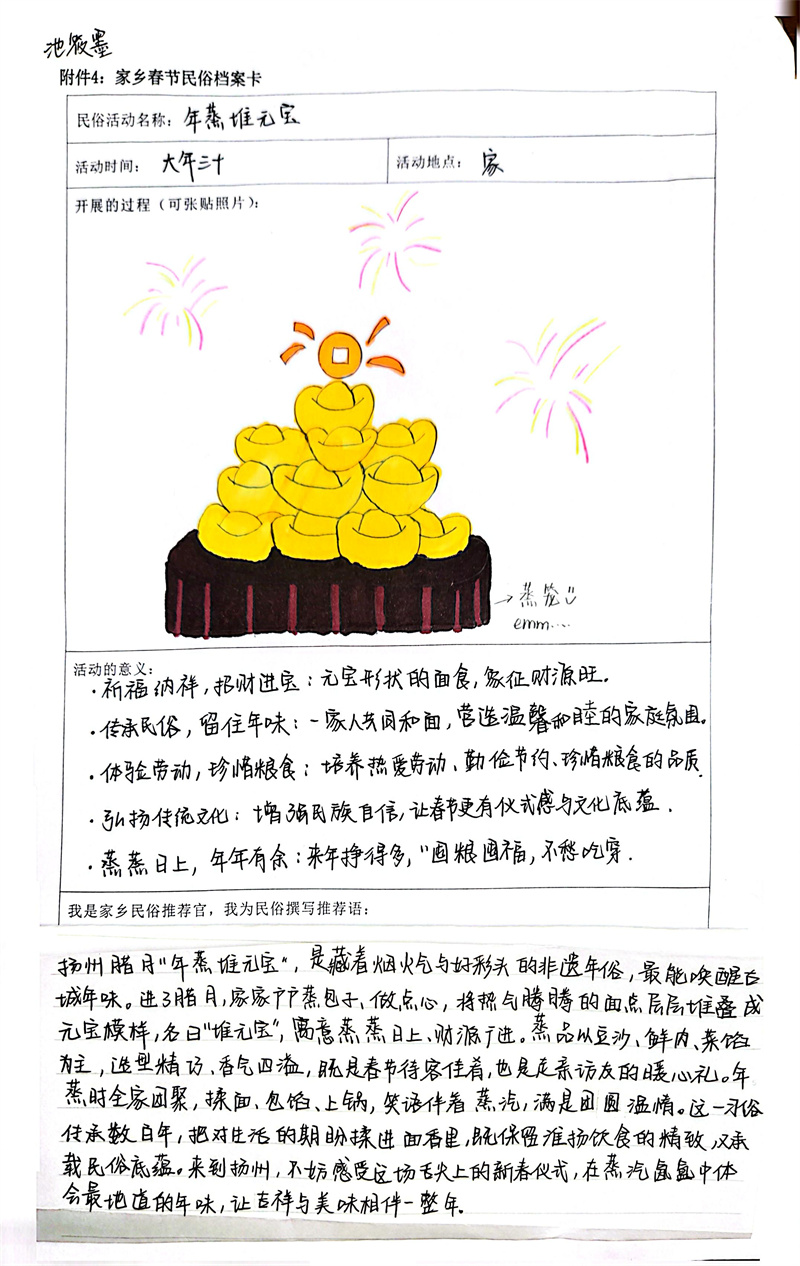 池液墨
附件4：家乡春节民俗档案卡
民俗活动名称：年蒸堆元宝
活动时间：大年三十 活动地点：家
开展的过程（可张贴照片）：
→蒸笼
emm....
活动的意义：
·祈福纳祥，招财进宝：元宝形状的面食，象征财源旺。
·传承民俗，留住年味：一家人共同和面，营造温馨和睦的家庭氛围。
·体验劳动，珍惜粮食：培养热爱劳动、勤俭节约、珍惜粮食的品质.
·弘扬传统文化：增强民族自信，让春节更有仪式感与文化底蕴.
·蒸蒸日上，年年有余：来年挣得多，"囤粮囤福，不愁吃穿.
我是家乡民俗推荐官，我为民俗撰写推荐语：
扬州腊月"年蒸堆元宝"，是藏着烟火气与好彩头的非遗年俗，最能唤醒古
城年味。进了腊月，家家户户蒸包子、做点心，将热气腾腾的面点层层堆叠成
元宝模样，名曰"堆元宝"，寓意蒸蒸日上、财源广进。蒸品以豆沙、鲜肉、菜馅
为主，造型精巧、香气四溢，既是春节待客佳肴，也是走亲访友的暖心礼。年
蒸时全家团聚，揉面、包馅、上锅，笑语伴着蒸汽，满是团圆温情。这一习俗
传承数百年，把对生活的期盼揉进面香里，既保留淮扬饮食的精致，又承
载民俗底蕴。来到扬州，不妨感受这场舌尖上的新春仪式，在蒸汽氤氲中体
会最地道的年味，让吉祥与美味相伴一整年.